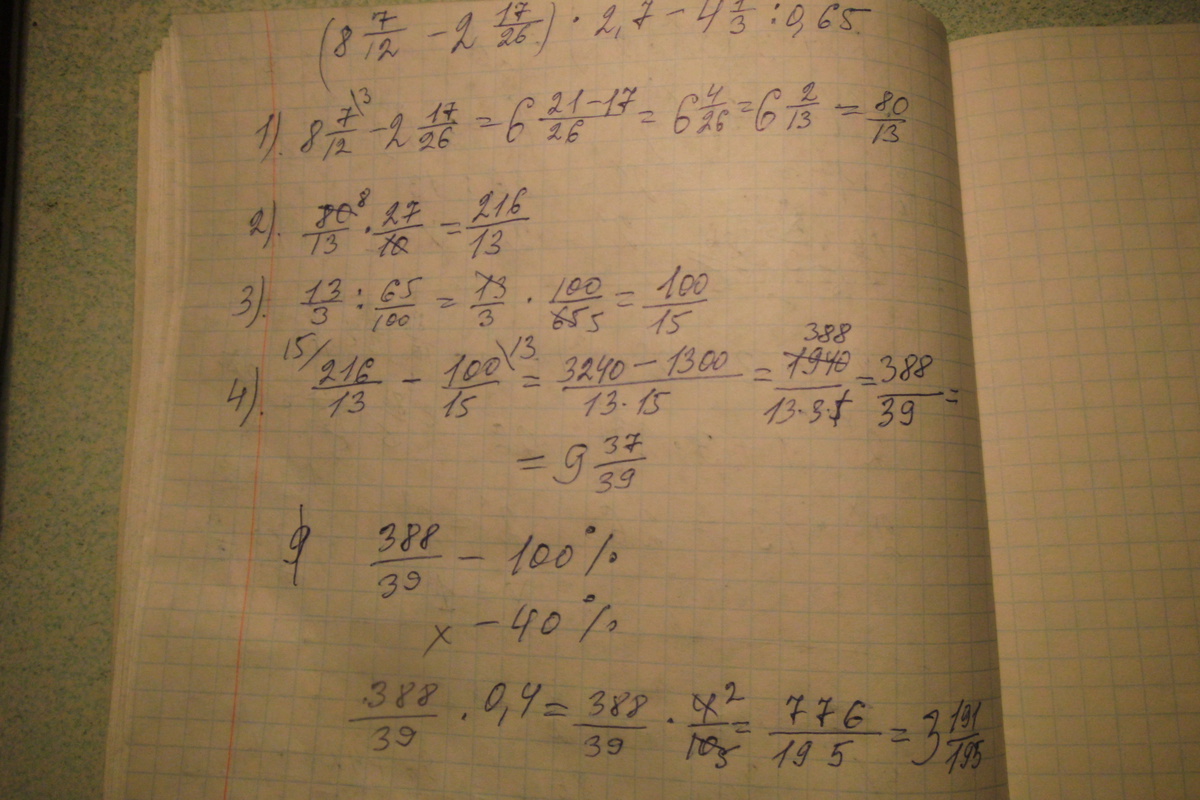 (8 7/12 − 2 17/26) · 2,7 − 4 1/3 : 0,65
1). 8 7\3/12 − 2 17/26 = 6 21−17/26 = 6 4/26 = 6 2/13 = 80/13
2). 80 8/13 · 27/10 = 216/13
3). 13/3 : 65/100 = 13/3 · 100/65 5 = 100/15
4). 15/ 216/13 − 100\13/15 = 3240 − 1300/13·15 = 1940 388/13·3·5 = 388/39 =
= 9 37/39
388/39 − 100%
x − 40%
388/39 · 0,4 = 388/39 · 4 2/10 5 = 776/195 = 3 191/195